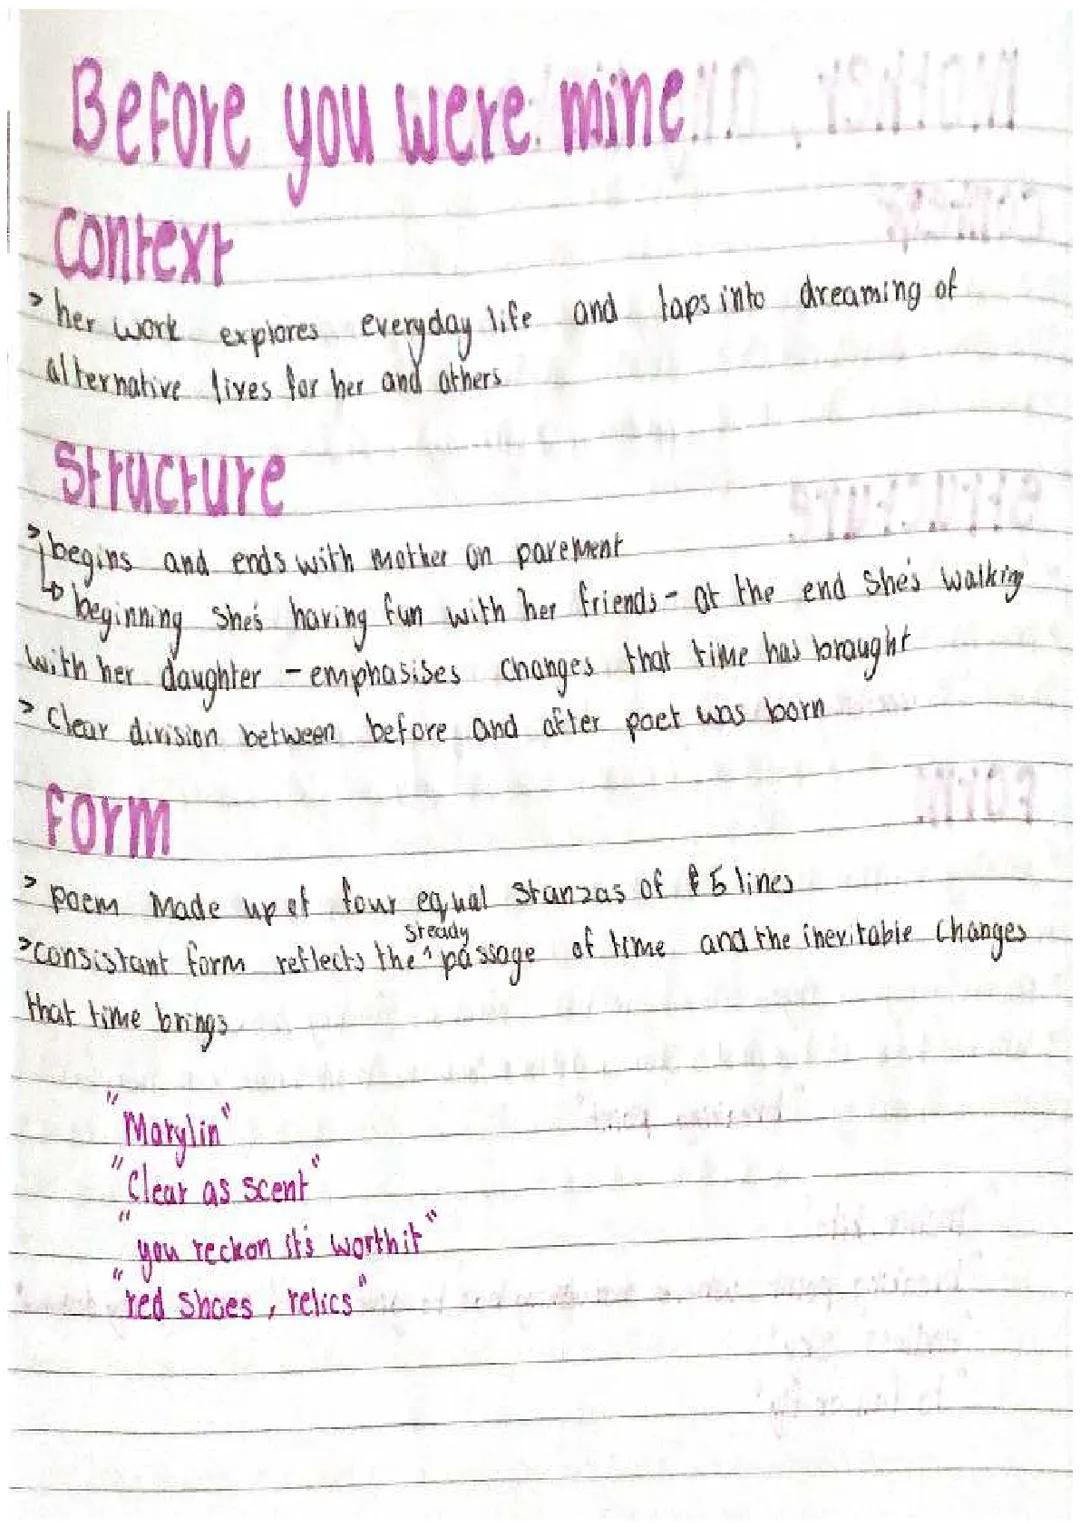 Before you were mine
Context
> her work explores everyday life and taps into dreaming of
alternative lives for her and others
Structure
> begins and ends with mother on pavement
↳ beginning she's having fun with her friends - at the end she's walking
with her daughter - emphasises changes that time has brought
> clear division between before and after poet was born
Form
> poem made up of four equal stanzas of 5 lines
steady
> consistant form reflects the ^ passage of time and the inevitable changes
that time brings
"Marylin"
"Clear as scent"
"you reckon it's worth it"
"red shoes, relics"